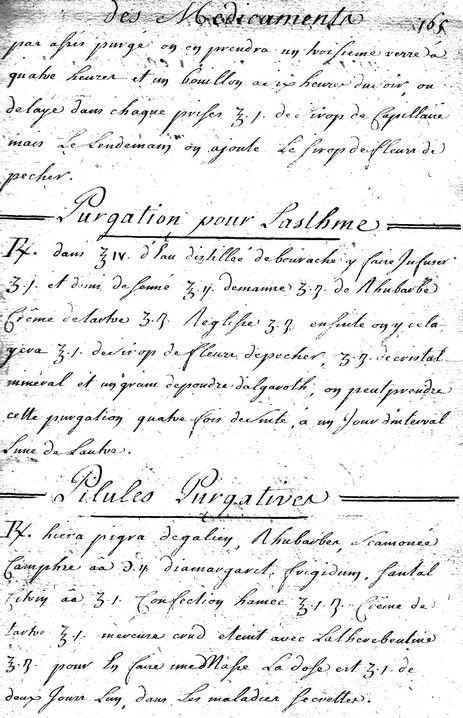 des Medicaments 165
par assés purgé on en prendra un troisieme verre à
quatre heures et un bouillon a six heures du soir on
delaye dans chaque prises ʒ.1. de sirop de Capillaire
mais Le Lendemain on ajoute Le sirop de fleurs de
pecher.
Purgation pour Lasthme
℞. dans ℥ıv. d'Eau distillée de bourache y faire Infuser
ʒ.j. et demi de senné ʒ.ij. de manne ʒ.ß. de Rhubarbe
Crême de tartre ʒ.ß. Reglisse ʒ.ß. ensuite on y cela
gera ʒ.1. de sirop de fleurs de pecher, ʒ.ß. de cristal
mineral et un grain de poudre d'algaroth, on peut prendre
cette purgation quatre fois de suite, a un Jour d'interval
Lune de Lautre.
Pilules Purgatives
℞. hiera pigra de galien, Rhubarbe, scamonée
Camphre aa ℈.ij. diamargarit, frigidum, santal
citrin aa ʒ.1. Confection hamec ʒ.1.ß. Crême de
tartre ʒ.1. mercure crud eteint avec La therebentine
ʒ.ß. pour En faire une Masse La dose est ʒ.1. de
deux Jours Lun, dans Les maladies secrettes.